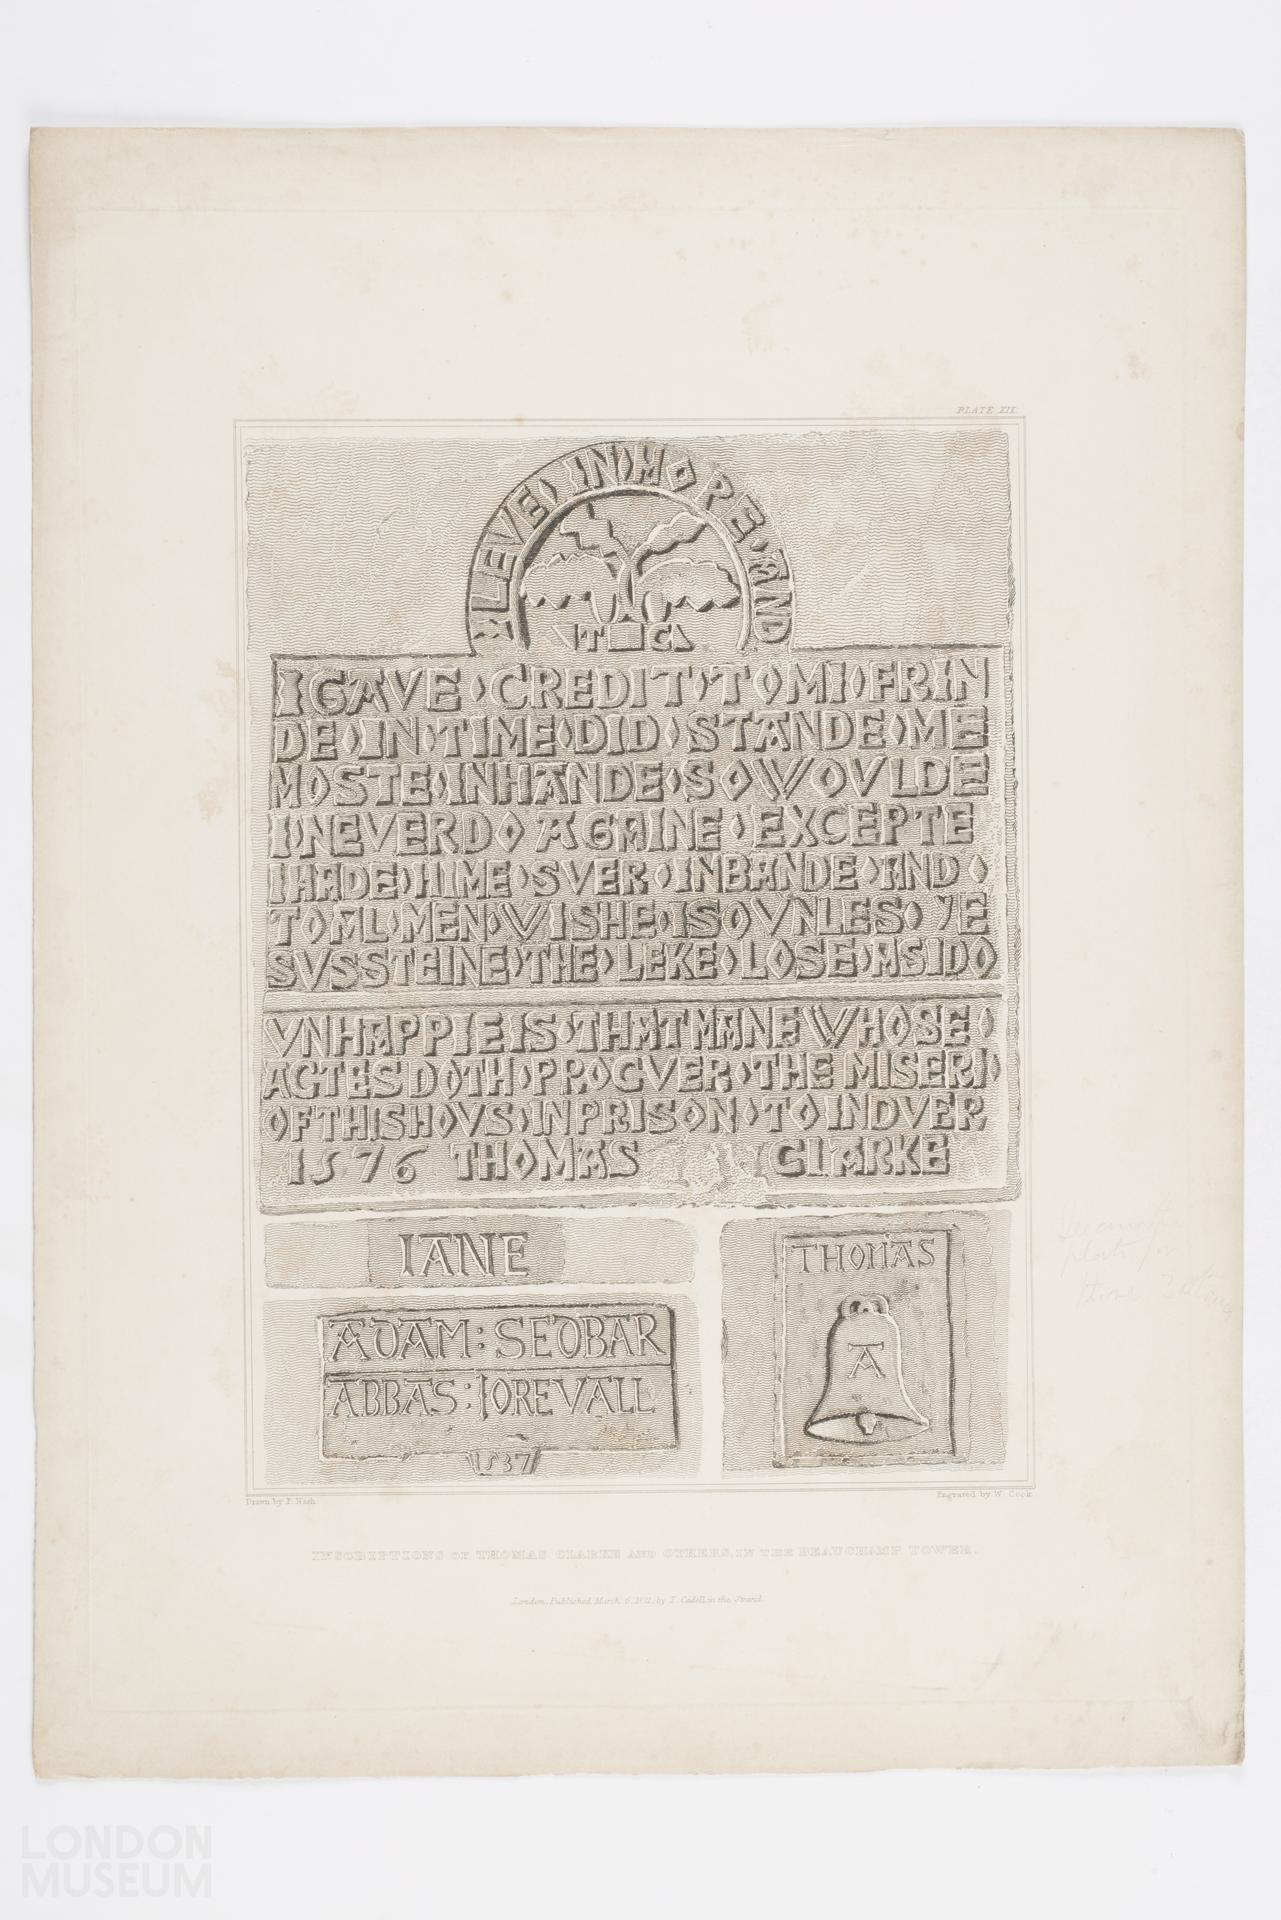 PLATE XIX.
X LEVE ◊ IN ◊ HOPE ◊ AND
T C
I GAVE ◊ CREDIT ◊ TO ◊ MI ◊ FRIN
DE ◊ IN ◊ TIME ◊ DID ◊ STANDE ◊ ME
MOSTE ◊ IN HANDE ◊ SO WOVLDE
I ◊ NEVER DO AGAINE ◊ EXCEPTE
I HADE ◊ HIME ◊ SVER ◊ IN BANDE ◊ AND ◊
TO AL ◊ MEN ◊ WISHE ◊ I SO ◊ VNLES ◊ YE
SVSSTEINE ◊ THE ◊ LEKE ◊ LOSE ◊ AS I DO
VNHAPPIE IS ◊ THAT MANE WHOSE ◊
ACTES DOTH ◊ PROCVER ◊ THE MISERI ◊
OF THIS HOVS ◊ IN PRISON ◊ TO INDVER
1576 THOMAS CLARKE
IANE
THOMAS
A
ADAM : SEDBAR
ABBAS : IOREVALL
1537
Drawn by F. Nash.
Engraved by W. Cook.
INSCRIPTIONS OF THOMAS CLARKE AND OTHERS, IN THE BEAUCHAMP TOWER.
London, Published March 6, 1821, by T. Cadell, in the Strand.
LONDON
MUSEUM